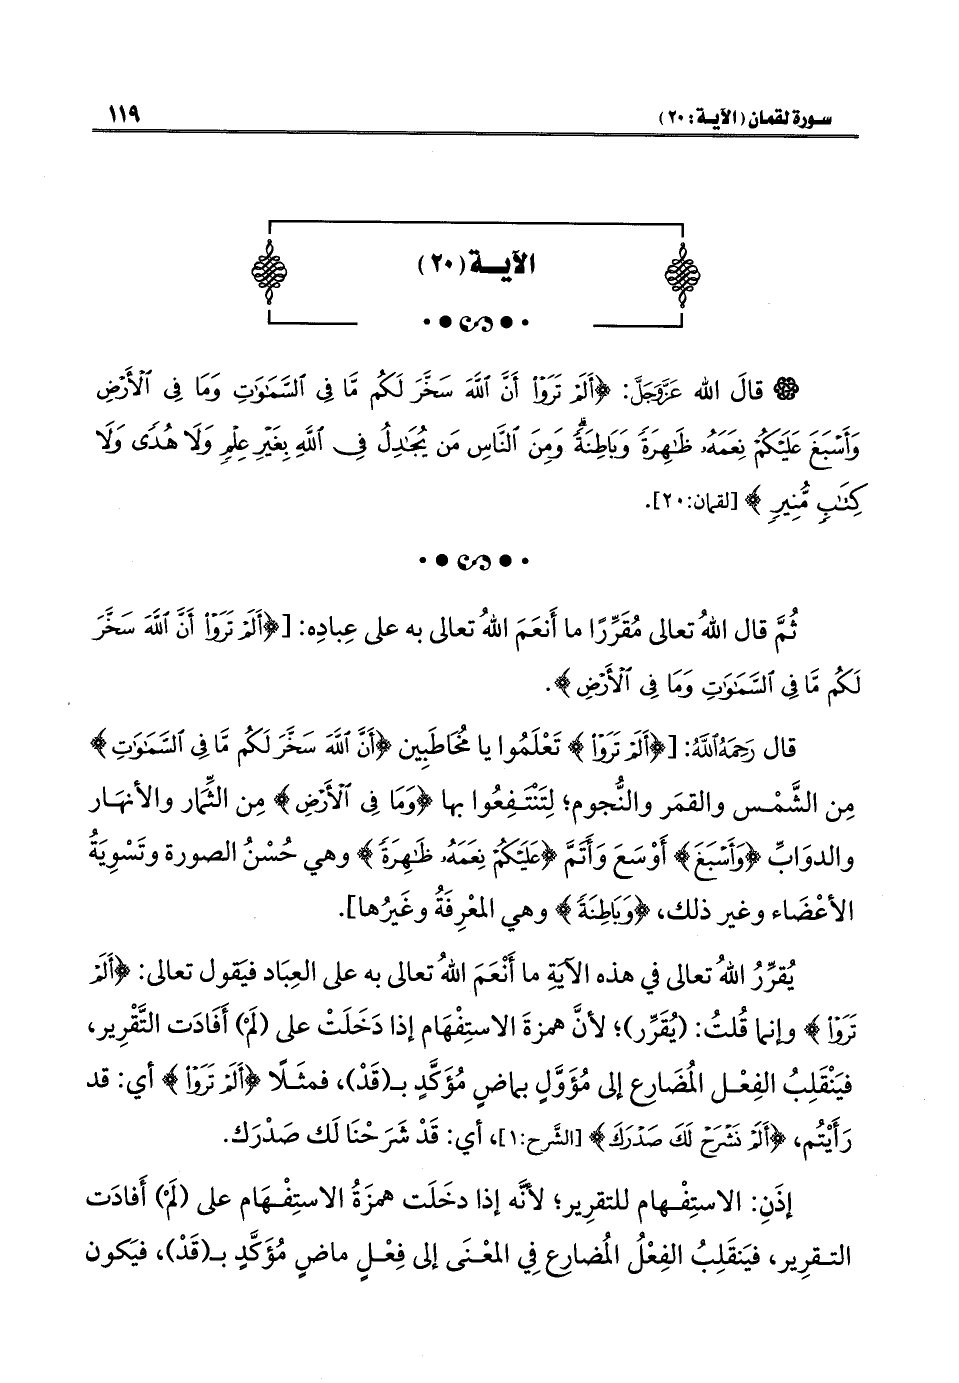 سورة لقمان (الآية: ٢٠)
١١٩
الآية (٢٠)
قالَ الله عَزَّوَجَلَّ: ﴿أَلَمْ تَرَوْا۟ أَنَّ ٱللَّهَ سَخَّرَ لَكُم مَّا فِى ٱلسَّمَٰوَٰتِ وَمَا فِى ٱلْأَرْضِ
وَأَسْبَغَ عَلَيْكُمْ نِعَمَهُۥ ظَٰهِرَةً وَبَاطِنَةً ۗ وَمِنَ ٱلنَّاسِ مَن يُجَٰدِلُ فِى ٱللَّهِ بِغَيْرِ عِلْمٍ وَلَا هُدًى وَلَا
كِتَٰبٍ مُّنِيرٍ ﴾ [لقمان:٢٠].
ثُمَّ قال اللهُ تعالى مُقَرِّرًا ما أَنعَمَ اللهُ تعالى به على عِبادِه: [﴿أَلَمْ تَرَوْا۟ أَنَّ ٱللَّهَ سَخَّرَ
لَكُم مَّا فِى ٱلسَّمَٰوَٰتِ وَمَا فِى ٱلْأَرْضِ ﴾.
قال رَحِمَهُ ٱللَّهُ: [﴿أَلَمْ تَرَوْا۟ ﴾ تَعْلَمُوا يا مُخَاطَبِين ﴿أَنَّ ٱللَّهَ سَخَّرَ لَكُم مَّا فِى ٱلسَّمَٰوَٰتِ ﴾
مِن الشَّمْس والقمَر والنُّجوم؛ لِتَنْتَفِعُوا بها ﴿وَمَا فِى ٱلْأَرْضِ ﴾ مِن الثِّمار والأنهار
والدوَابِّ ﴿وَأَسْبَغَ﴾ أَوْسَعَ وأَتَمَّ ﴿عَلَيْكُمْ نِعَمَهُۥ ظَٰهِرَةً ﴾ وهي حُسْنُ الصورة وتَسْوِيَةُ
الأَعْضَاء وغير ذلك، ﴿وَبَاطِنَةً ﴾ وهي المَعْرِفَةُ وغَيرُها].
يُقرِّرُ اللهُ تعالى في هذه الآيَةِ ما أَنْعَمَ اللهُ تعالى به على العِبَاد فيَقول تعالى: ﴿أَلَمْ
تَرَوْا۟ ﴾ وإنما قُلتُ: (يُقَرِّر)؛ لأنَّ همزةَ الاستِفْهَام إذا دَخَلَتْ على (لَمْ) أَفَادَت التَّقْرِير،
فيَنْقَلِبُ الفِعْل المُضَارِع إلى مُؤَوَّلٍ بماضٍ مُؤَكَّدٍ بـ(قَدْ)، فمثَلًا ﴿أَلَمْ تَرَوْا۟ ﴾ أي: قد
رَأَيْتُم، ﴿أَلَمْ نَشْرَحْ لَكَ صَدْرَكَ﴾ [الشَّرح:١]، أي: قَدْ شَرَحْنَا لَك صَدْرَك.
إِذَنِ: الاستِفْهام للتقرِير؛ لأنَّه إذا دخَلَت همزَةُ الاستِفْهَام على (لَمْ) أَفادَت
التقرِير، فيَنقَلِبُ الفِعْلُ المُضارِع في المَعْنَى إلى فِعْلٍ ماضٍ مُؤَكَّدٍ بـ(قَدْ)، فيَكون